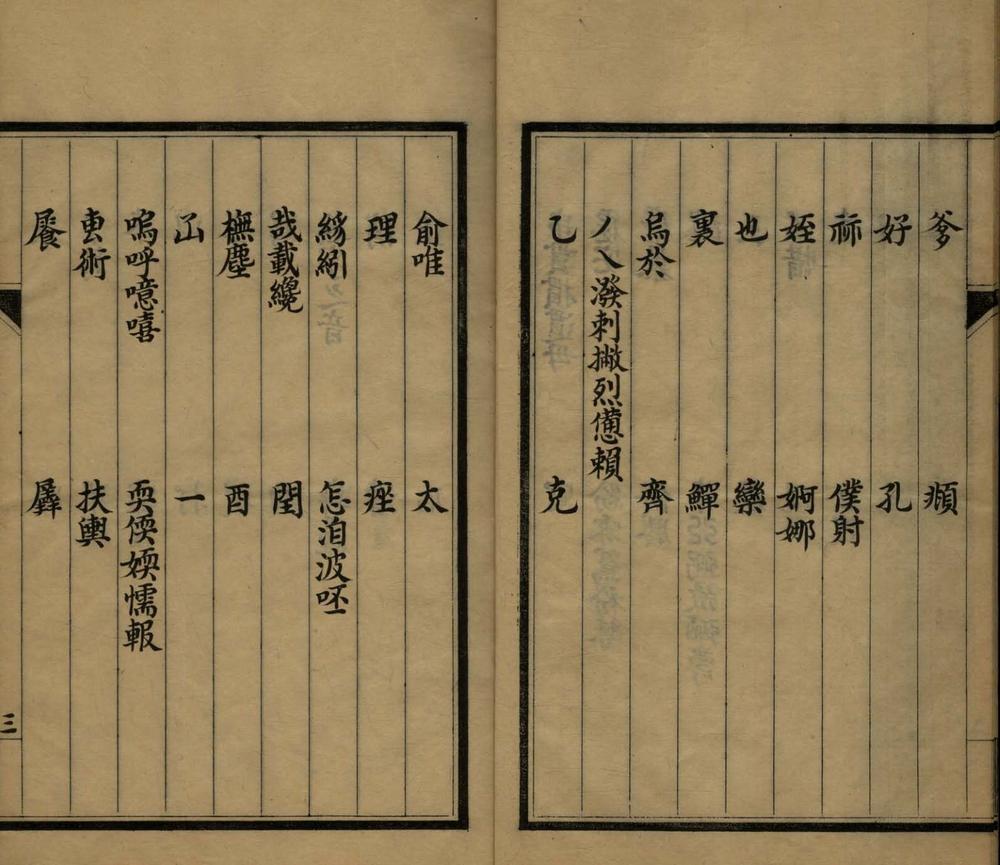 爹 瘕
好 孔
祢 僕射
姪 婀娜
也 欒
裏 鱓
烏於 齊
丿乀潑刺撇烈憊賴
乙 克
俞唯 太
理 痤
綯紖 怎洎波呸
哉載纔 閏
橅塵 酉
㞢 一
嗚呼噫嘻 耎偄媆懦報
叀術 扶輿
三